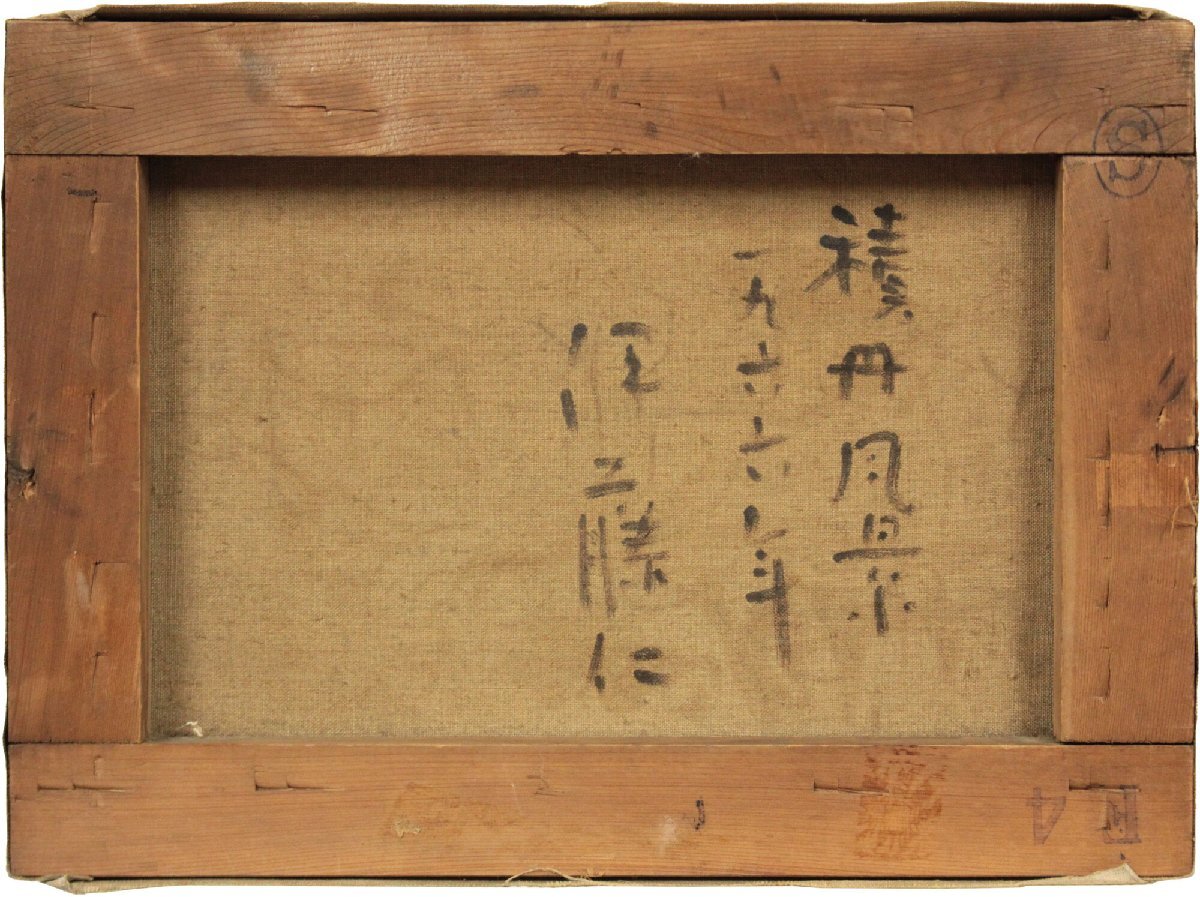 積丹風景
一九六六年
藤仁
F 4